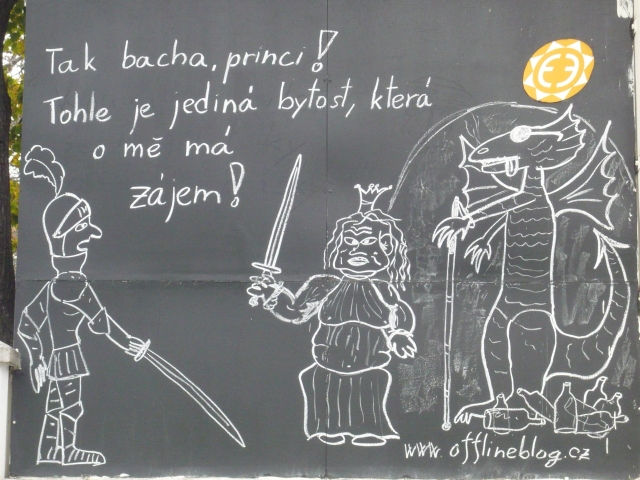 Tak bacha, princi!
Tohle je jediná bytost, která
o mě má
zájem!
www.offlineblog.cz